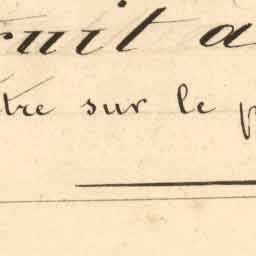 ruit a
tre sur le p